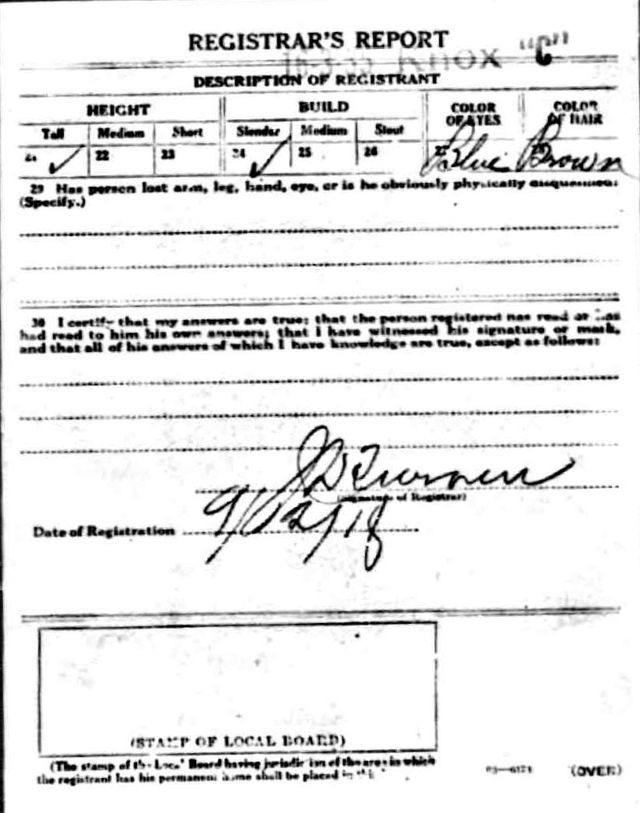 REGISTRAR'S REPORT
Knox "C"
DESCRIPTION OF REGISTRANT
HEIGHT BUILD COLOR OF EYES COLOR OF HAIR
Tall Medium Short Slender Medium Stout
21 ✓ 22 23 24 ✓ 25 26 Blue Brown
29 Has person lost arm, leg, hand, eye, or is he obviously physically
(Specify.)
30 I certify that my answers are true; that the person registered has read or has
had read to him his own answers; that I have witnessed his signature or mark,
and that all of his answers of which I have knowledge are true, except as follows:
(Signature of Registrar)
Date of Registration 9/12/18
(STAMP OF LOCAL BOARD)
(The stamp of the Local Board having jurisdiction of the area in which
the registrant has his permanent home shall be placed in
(OVER)